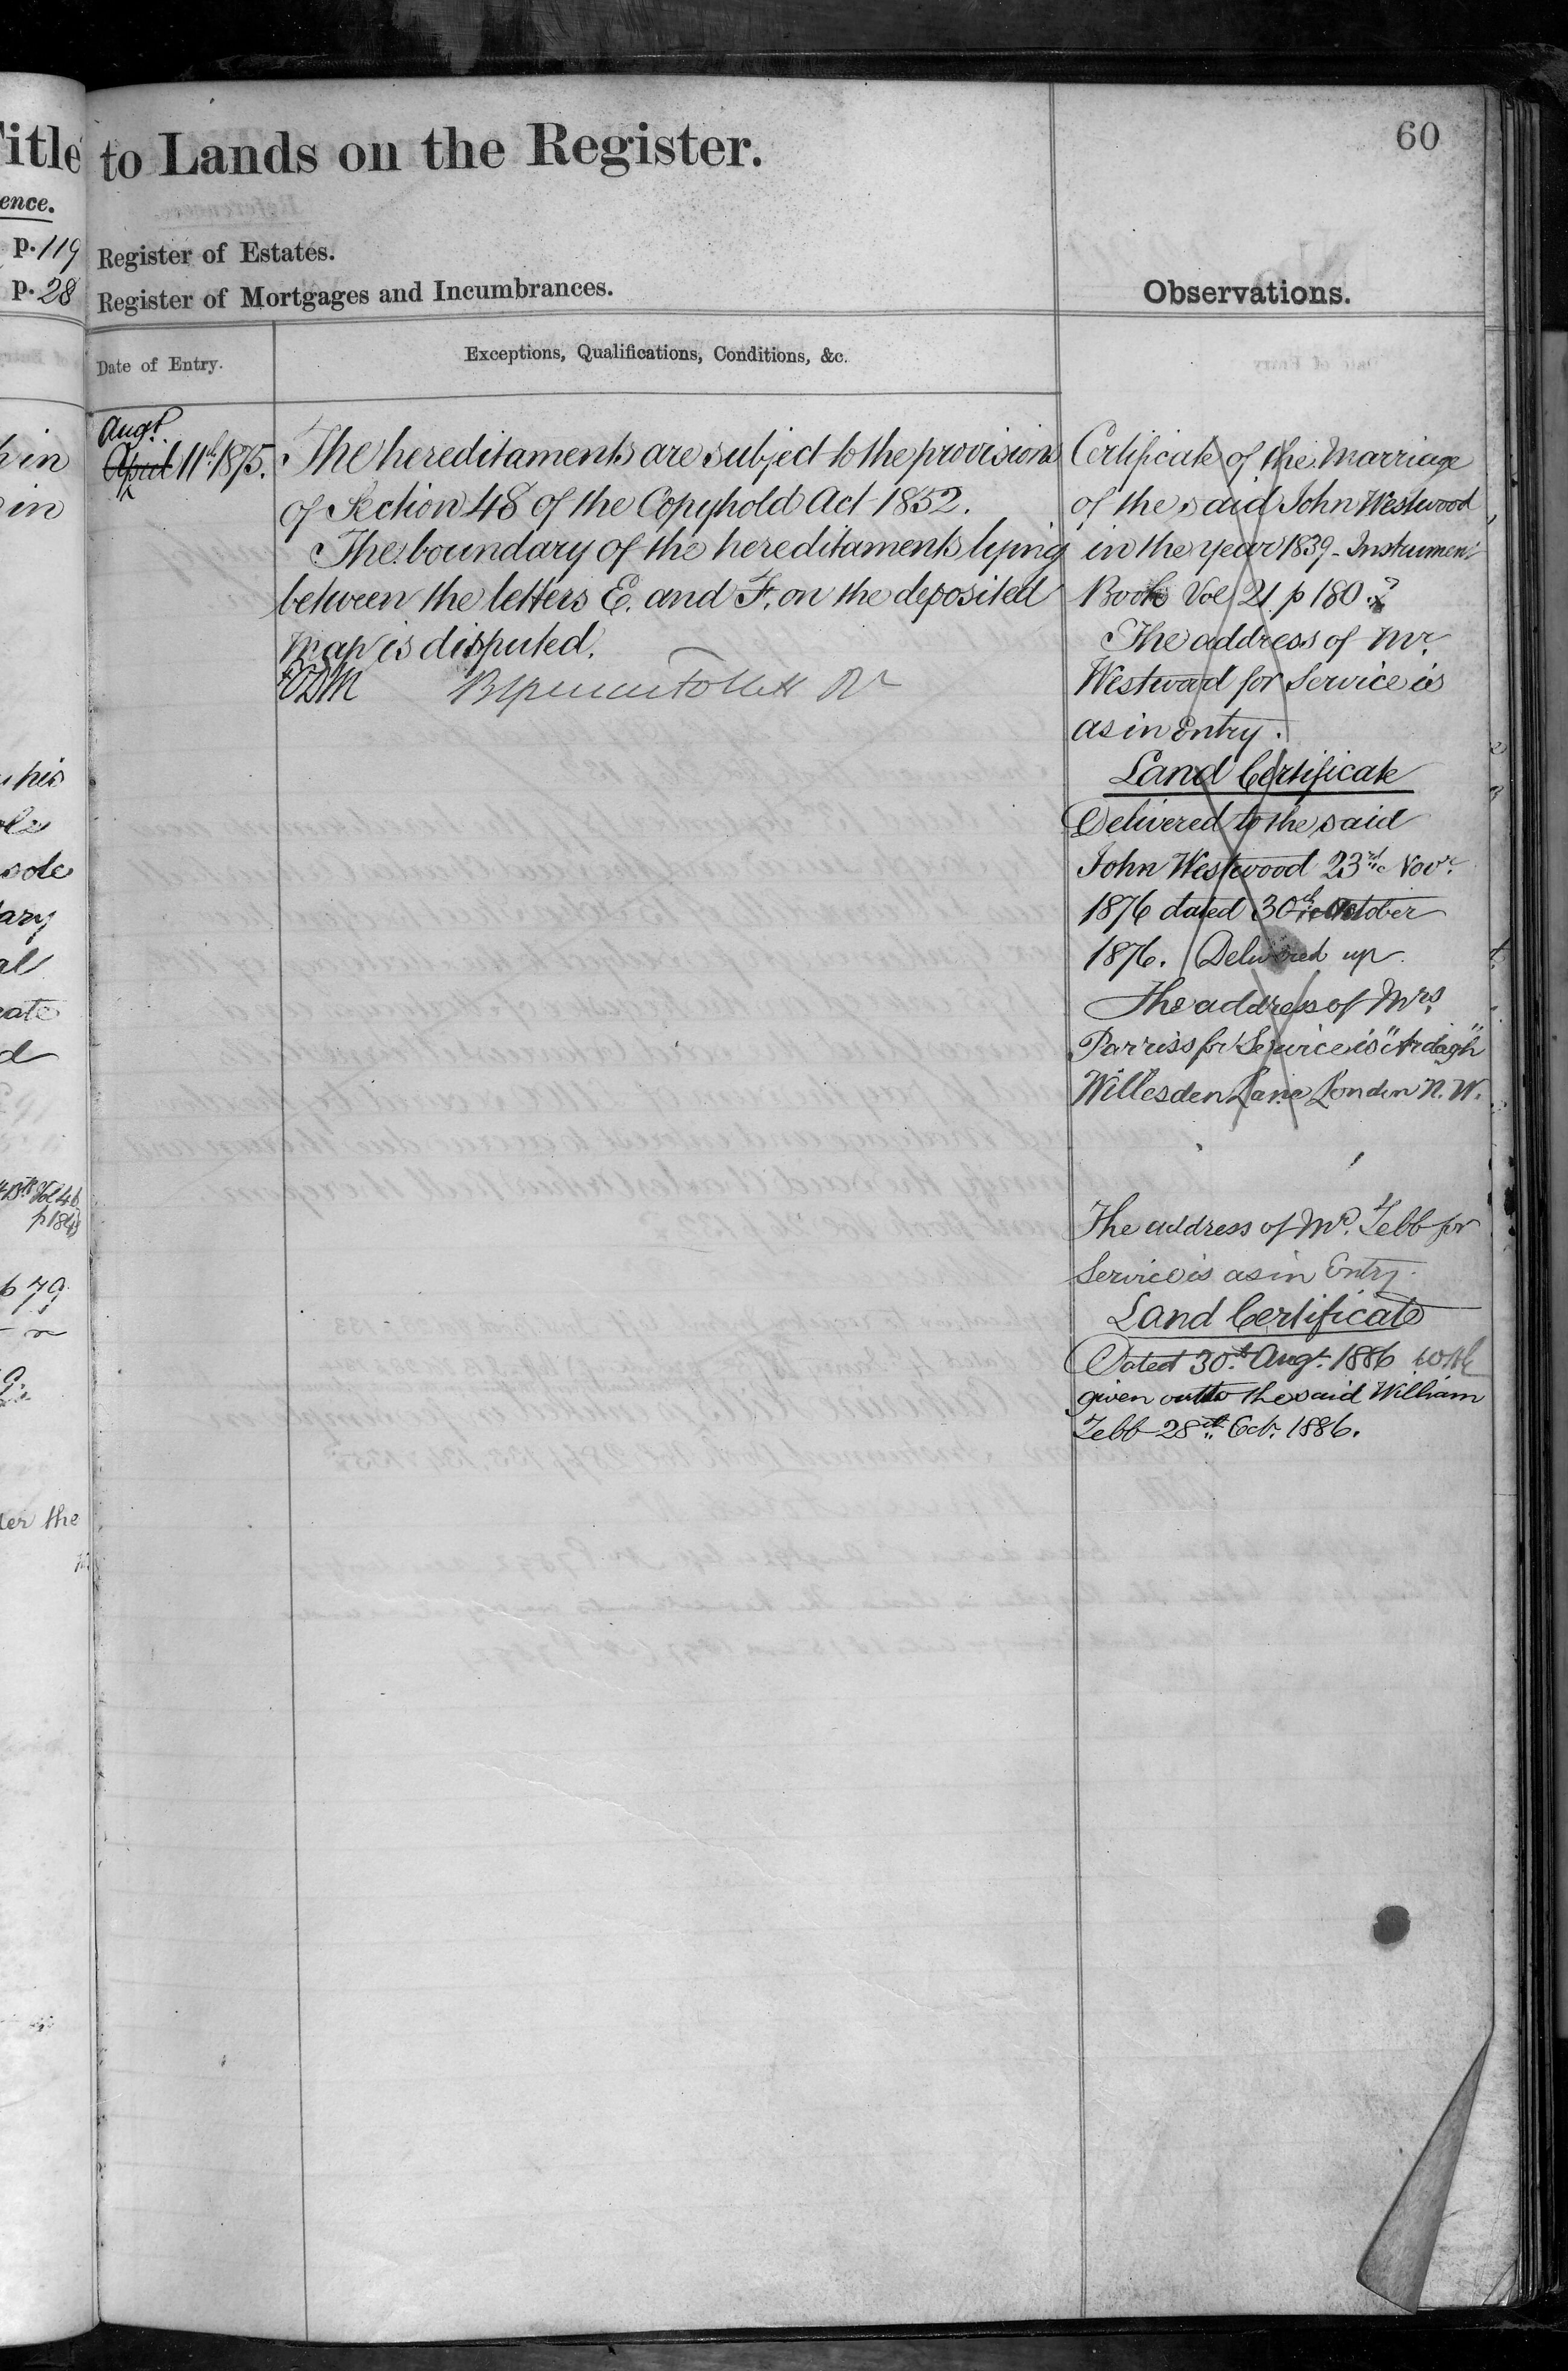 Title to Lands on the Register.
60
ence.
p. 119 Register of Estates.
p. 28 Register of Mortgages and Incumbrances.
Observations.
Date of Entry.
Exceptions, Qualifications, Conditions, &c.
Augt.
April 11th 1875.
The hereditaments are subject to the provisions
of Section 48 of the Copyhold Act 1852.
The boundary of the hereditaments lying
between the letters E. and F. on the deposited
map is disputed.
Certificate of the Marriage
of the said John Westwood
in the year 1839 - Instrument
Book Vol 21 p 180.
The address of Mr.
Westwood for Service is
as in Entry.
Land Certificate
Delivered to the said
John Westwood 23rd Novr.
1876 dated 30th October
1876. Delivered up
The address of Mrs.
Parriss for Service is "Ardagh"
Willesden Lane London N.W.
The address of Mr. Tebb for
Service is as in Entry.
Land Certificate
Dated 30th Augt. 1886
given out to the said William
Tebb 28th Oct. 1886.